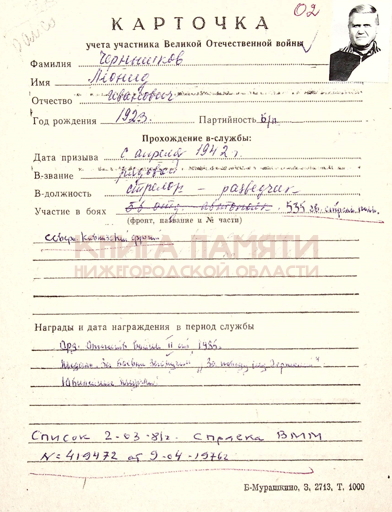 02
КАРТОЧКА
учета участника Великой Отечественной войны
Фамилия Чернышков
Имя Леонид
Отчество Иванович
Год рождения 1923. Партийность б/п
Прохождение в-службы:
Дата призыва с апреля 1942 г.
В-звание рядовой
В-должность стрелок – разведчик
Участие в боях 535
(фронт, название и № части)
Северо Кавказский фронт
КНИГА ПАМЯТИ
НИЖЕГОРОДСКОЙ ОБЛАСТИ
Награды и дата награждения в период службы
Орд. Отечеств. войны II ст 1985.
Медаль "За боевые заслуги", "За победу над Германией"
Юбилейные медали
Список 2-03-81г. Справка ВММ
N=419472 от 9-04-1976г
Б-Мурашкино, З, 2713, Т. 1000